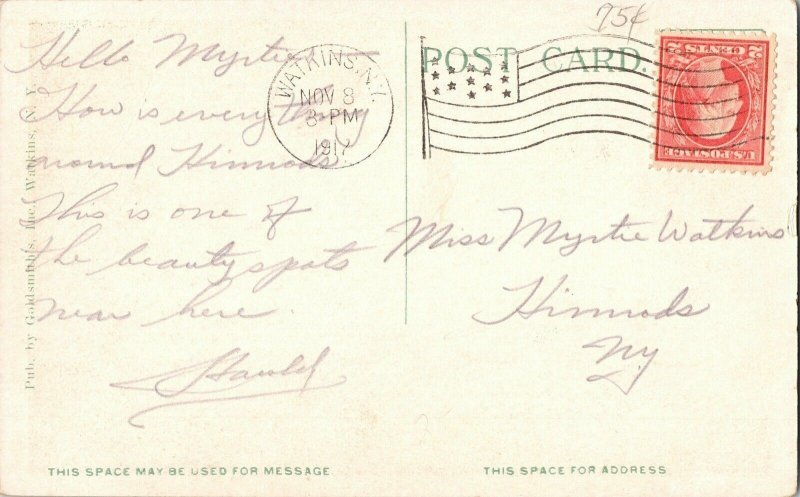 75¢
POST CARD.
WATKINS, N.Y.
NOV 8
8-PM
1917
2 CENTS 2
U.S. POSTAGE
Hello Myrtie
How is everything
around Himrods.
This is one of
the beauty spots
near here.
Harold
Miss Myrtie Watkins
Himrods
Ny
Pub. by Goldsmith's, Inc., Watkins, N. Y.
THIS SPACE MAY BE USED FOR MESSAGE
THIS SPACE FOR ADDRESS